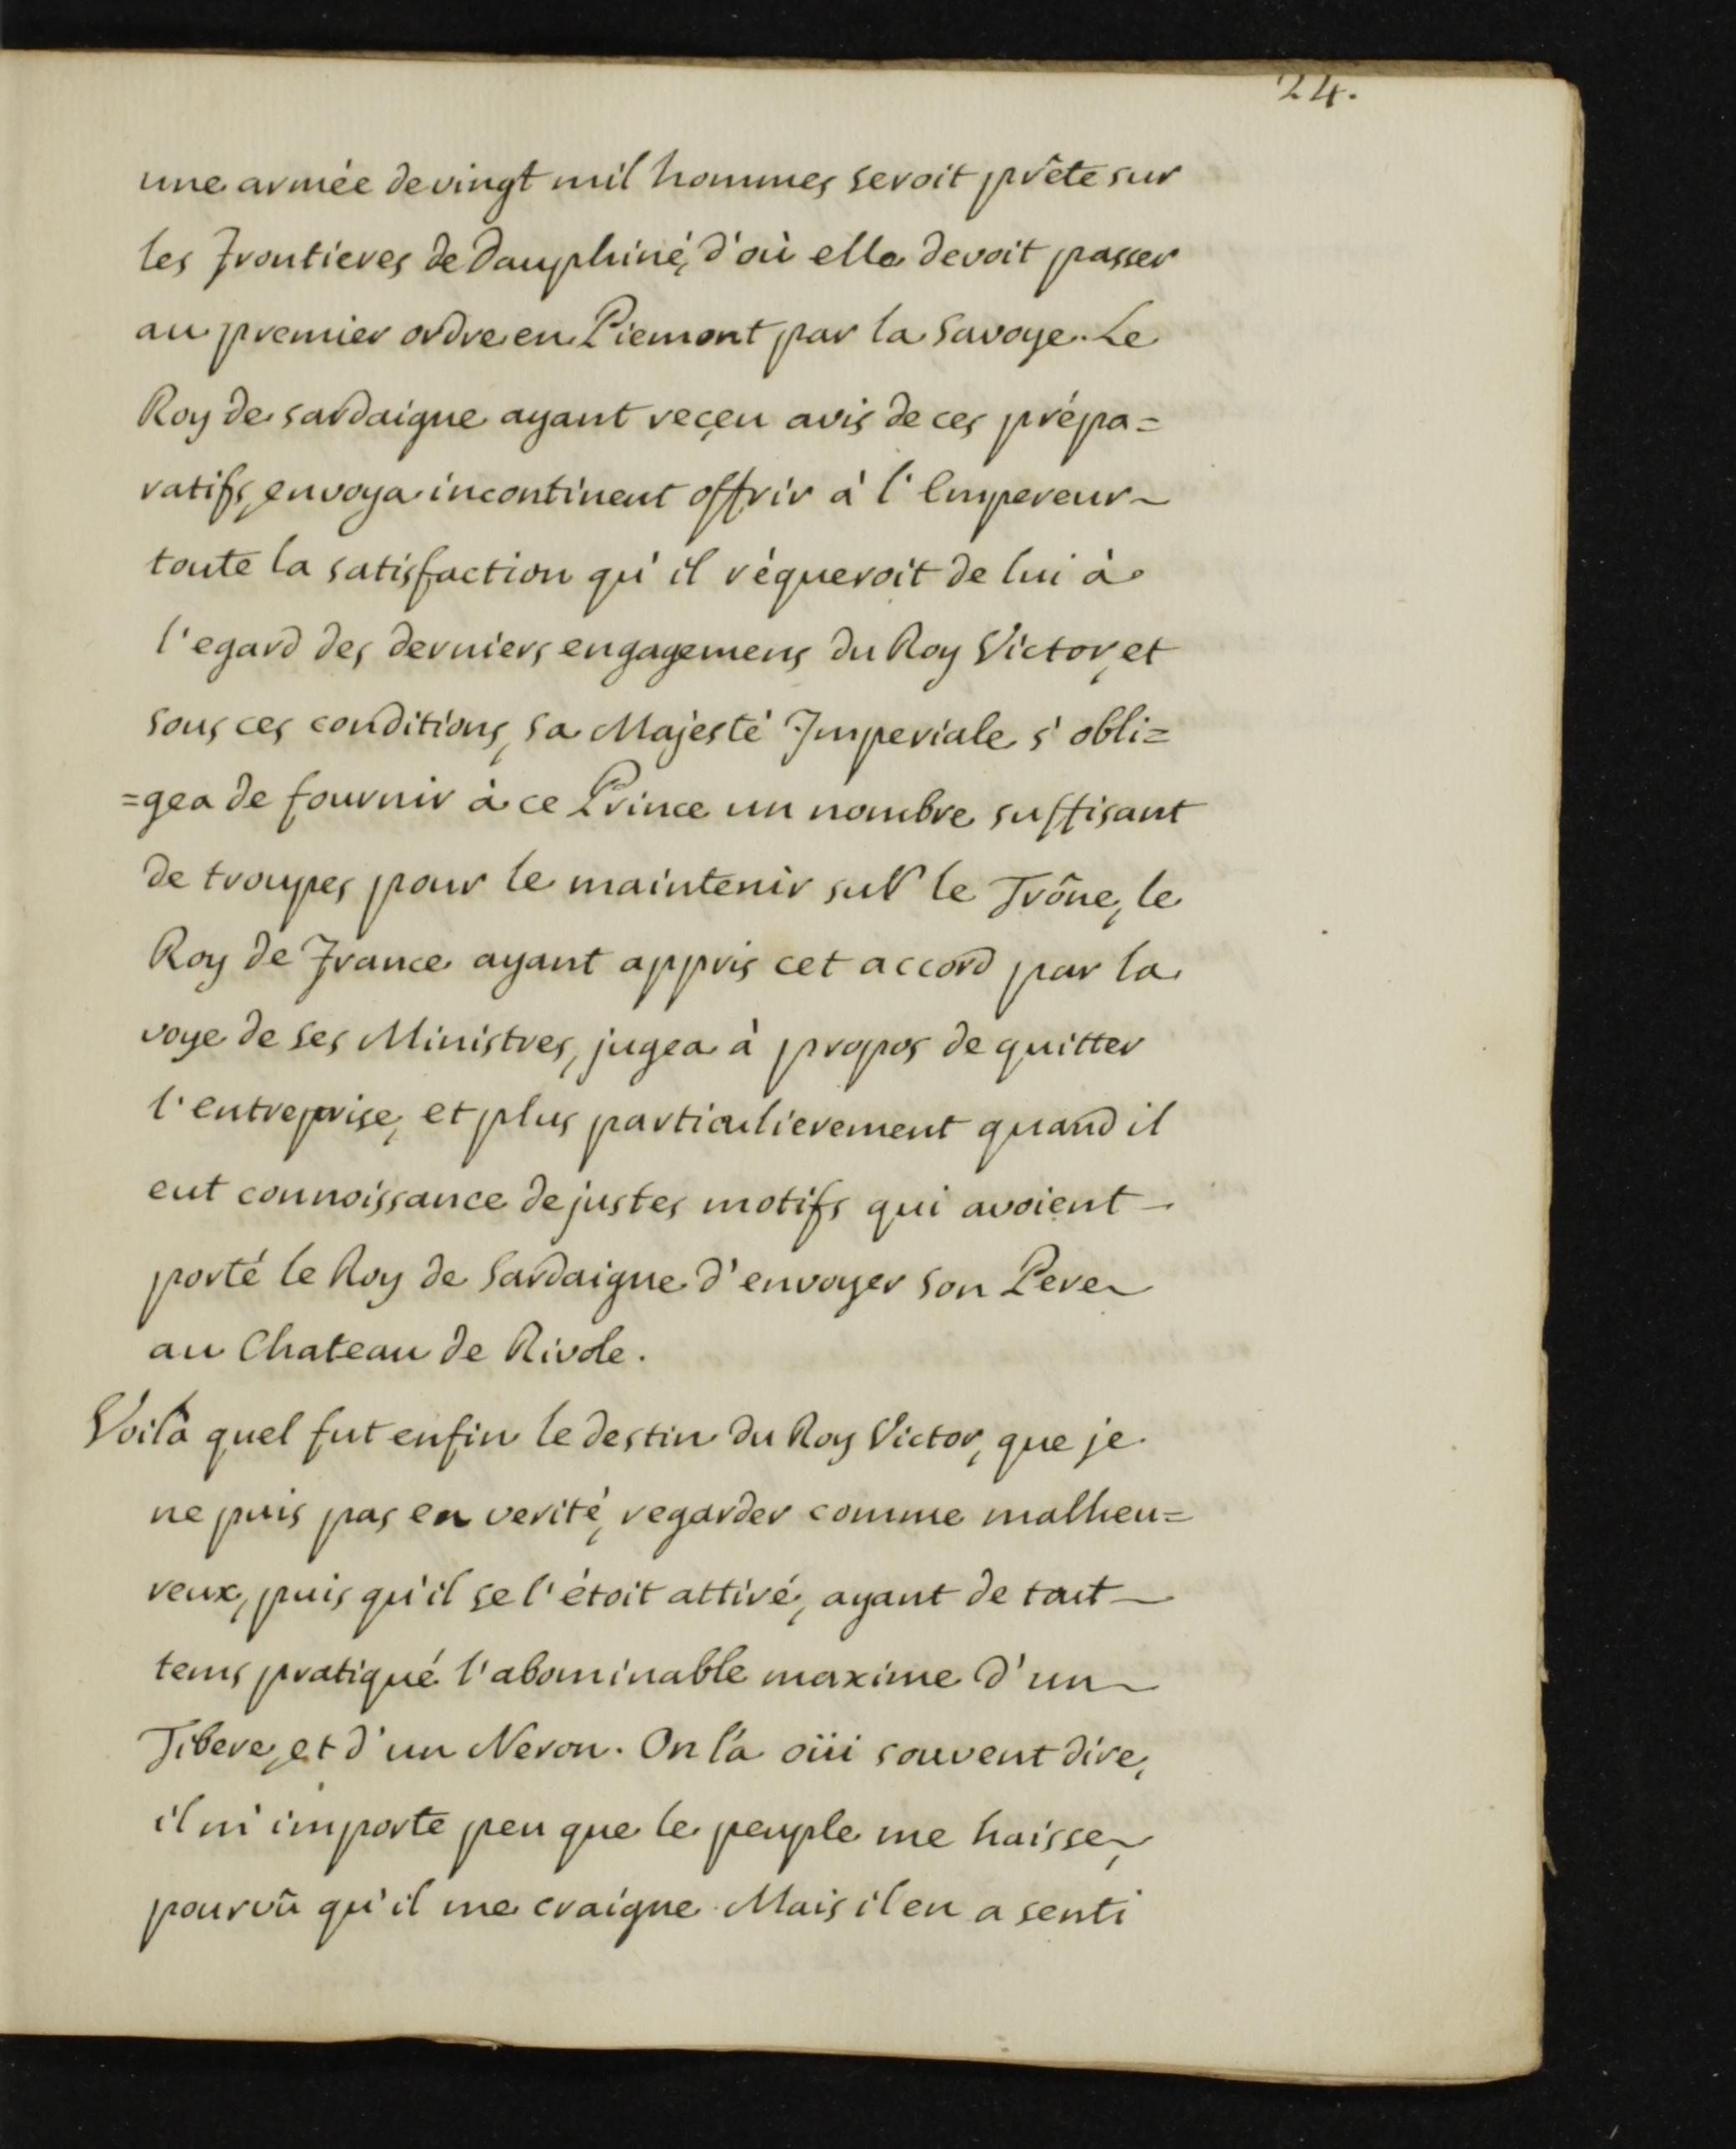 24.
une armée de vingt mil hommes seroit prête sur
les frontieres de Dauphiné, d'où elle devoit passer
au premier ordre en Piemont par la Savoye. Le
Roy de Sardaigne ayant reçeu avis de ces prépa=
ratifs, envoya incontinent offrir à l'Empereur
toute la satisfaction qu'il réqueroit de lui à
l'egard des derniers engagemens du Roy Victor, et
sous ces conditions, sa Majesté Imperiale s'obli=
=gea de fournir à ce Prince un nombre suffisant
de troupes pour le maintenir sur le Trône, le
Roy de France ayant appris cet accord par la
voye de ses Ministres, jugea à propos de quitter
l'entreprise, et plus particulierement quand il
eut connoissance de justes motifs qui avoient
porté le Roy de Sardaigne d'envoyer son Pere
au Chateau de Rivole.
Voilà quel fut enfin le destin du Roy Victor, que je
ne puis pas en verité, regarder comme malheu=
reux, puis qu'il se l'étoit attiré, ayant de tout
tems pratiqué l'abominable maxime d'un
Tibere, et d'un Neron. On l'a oüi souvent dire,
il m'importe peu que le peuple me haisse,
pourvû qu'il me craigne. Mais il en a senti